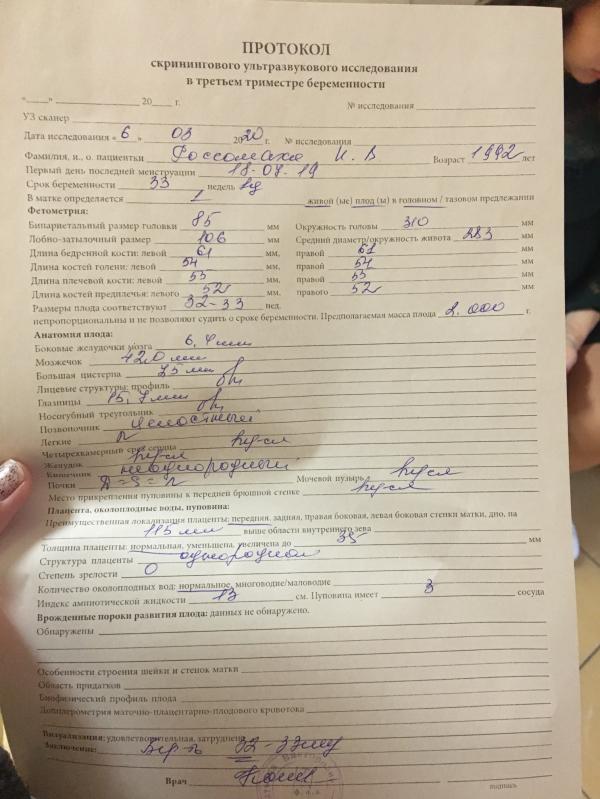 ПРОТОКОЛ
скринингового ультразвукового исследования
в третьем триместре беременности
"____" ____ 20__ г. № исследования
УЗ сканер
Дата исследования « 6 » 03 2020 г. № исследования
Фамилия, и., о. пациентки Россомаха К. В Возраст 1992 лет
Первый день последней менструации 18-07-19
Срок беременности 33 недель
В матке определяется 1 живой (ые) плод (ы) в головном / тазовом предлежании
Фетометрия:
Бипариетальный размер головки 85 мм Окружность головы 310 мм
Лобно-затылочный размер 106 мм Средний диаметр/окружность живота 283 мм
Длина бедренной кости: левой 61 мм, правой 61 мм
Длина костей голени: левой 54 мм, правой 54 мм
Длина плечевой кости: левой 55 мм, правой 55 мм
Длина костей предплечья: левого 52 мм, правого 52 мм
Размеры плода соответствуют 32-33 нед.
непропорциональны и не позволяют судить о сроке беременности. Предполагаемая масса плода 2.000 г.
Анатомия плода:
Боковые желудочки мозга 6,4 мм
Мозжечок 42,0 мм
Большая цистерна 7,5 мм
Лицевые структуры: профиль
Глазницы 15,7 мм
Носогубный треугольник
Позвоночник целостный
Легкие N
Четырехкамерный срез сердца
Желудок
Кишечник неоднородный
Почки D=S=N Мочевой пузырь
Место прикрепления пуповины к передней брюшной стенке
Плацента, околоплодные воды, пуповина:
Преимущественная локализация плаценты: передняя, задняя, правая боковая, левая боковая стенки матки, дно, на
115 мм выше области внутреннего зева
Толщина плаценты: нормальная, уменьшена, увеличена до 35 мм
Структура плаценты однородная
Степень зрелости 0
Количество околоплодных вод: нормальное, многоводие/маловодие
Индекс амниотической жидкости 13 см. Пуповина имеет 3 сосуда
Врожденные пороки развития плода: данных не обнаружено.
Обнаружены
Особенности строения шейки и стенок матки
Область придатков
Биофизический профиль плода
Допплерометрия маточно-плацентарно-плодового кровотока
Визуализация: удовлетворительная, затруднена
Заключение: Бер-ть 32-33нед
Врач
подпись